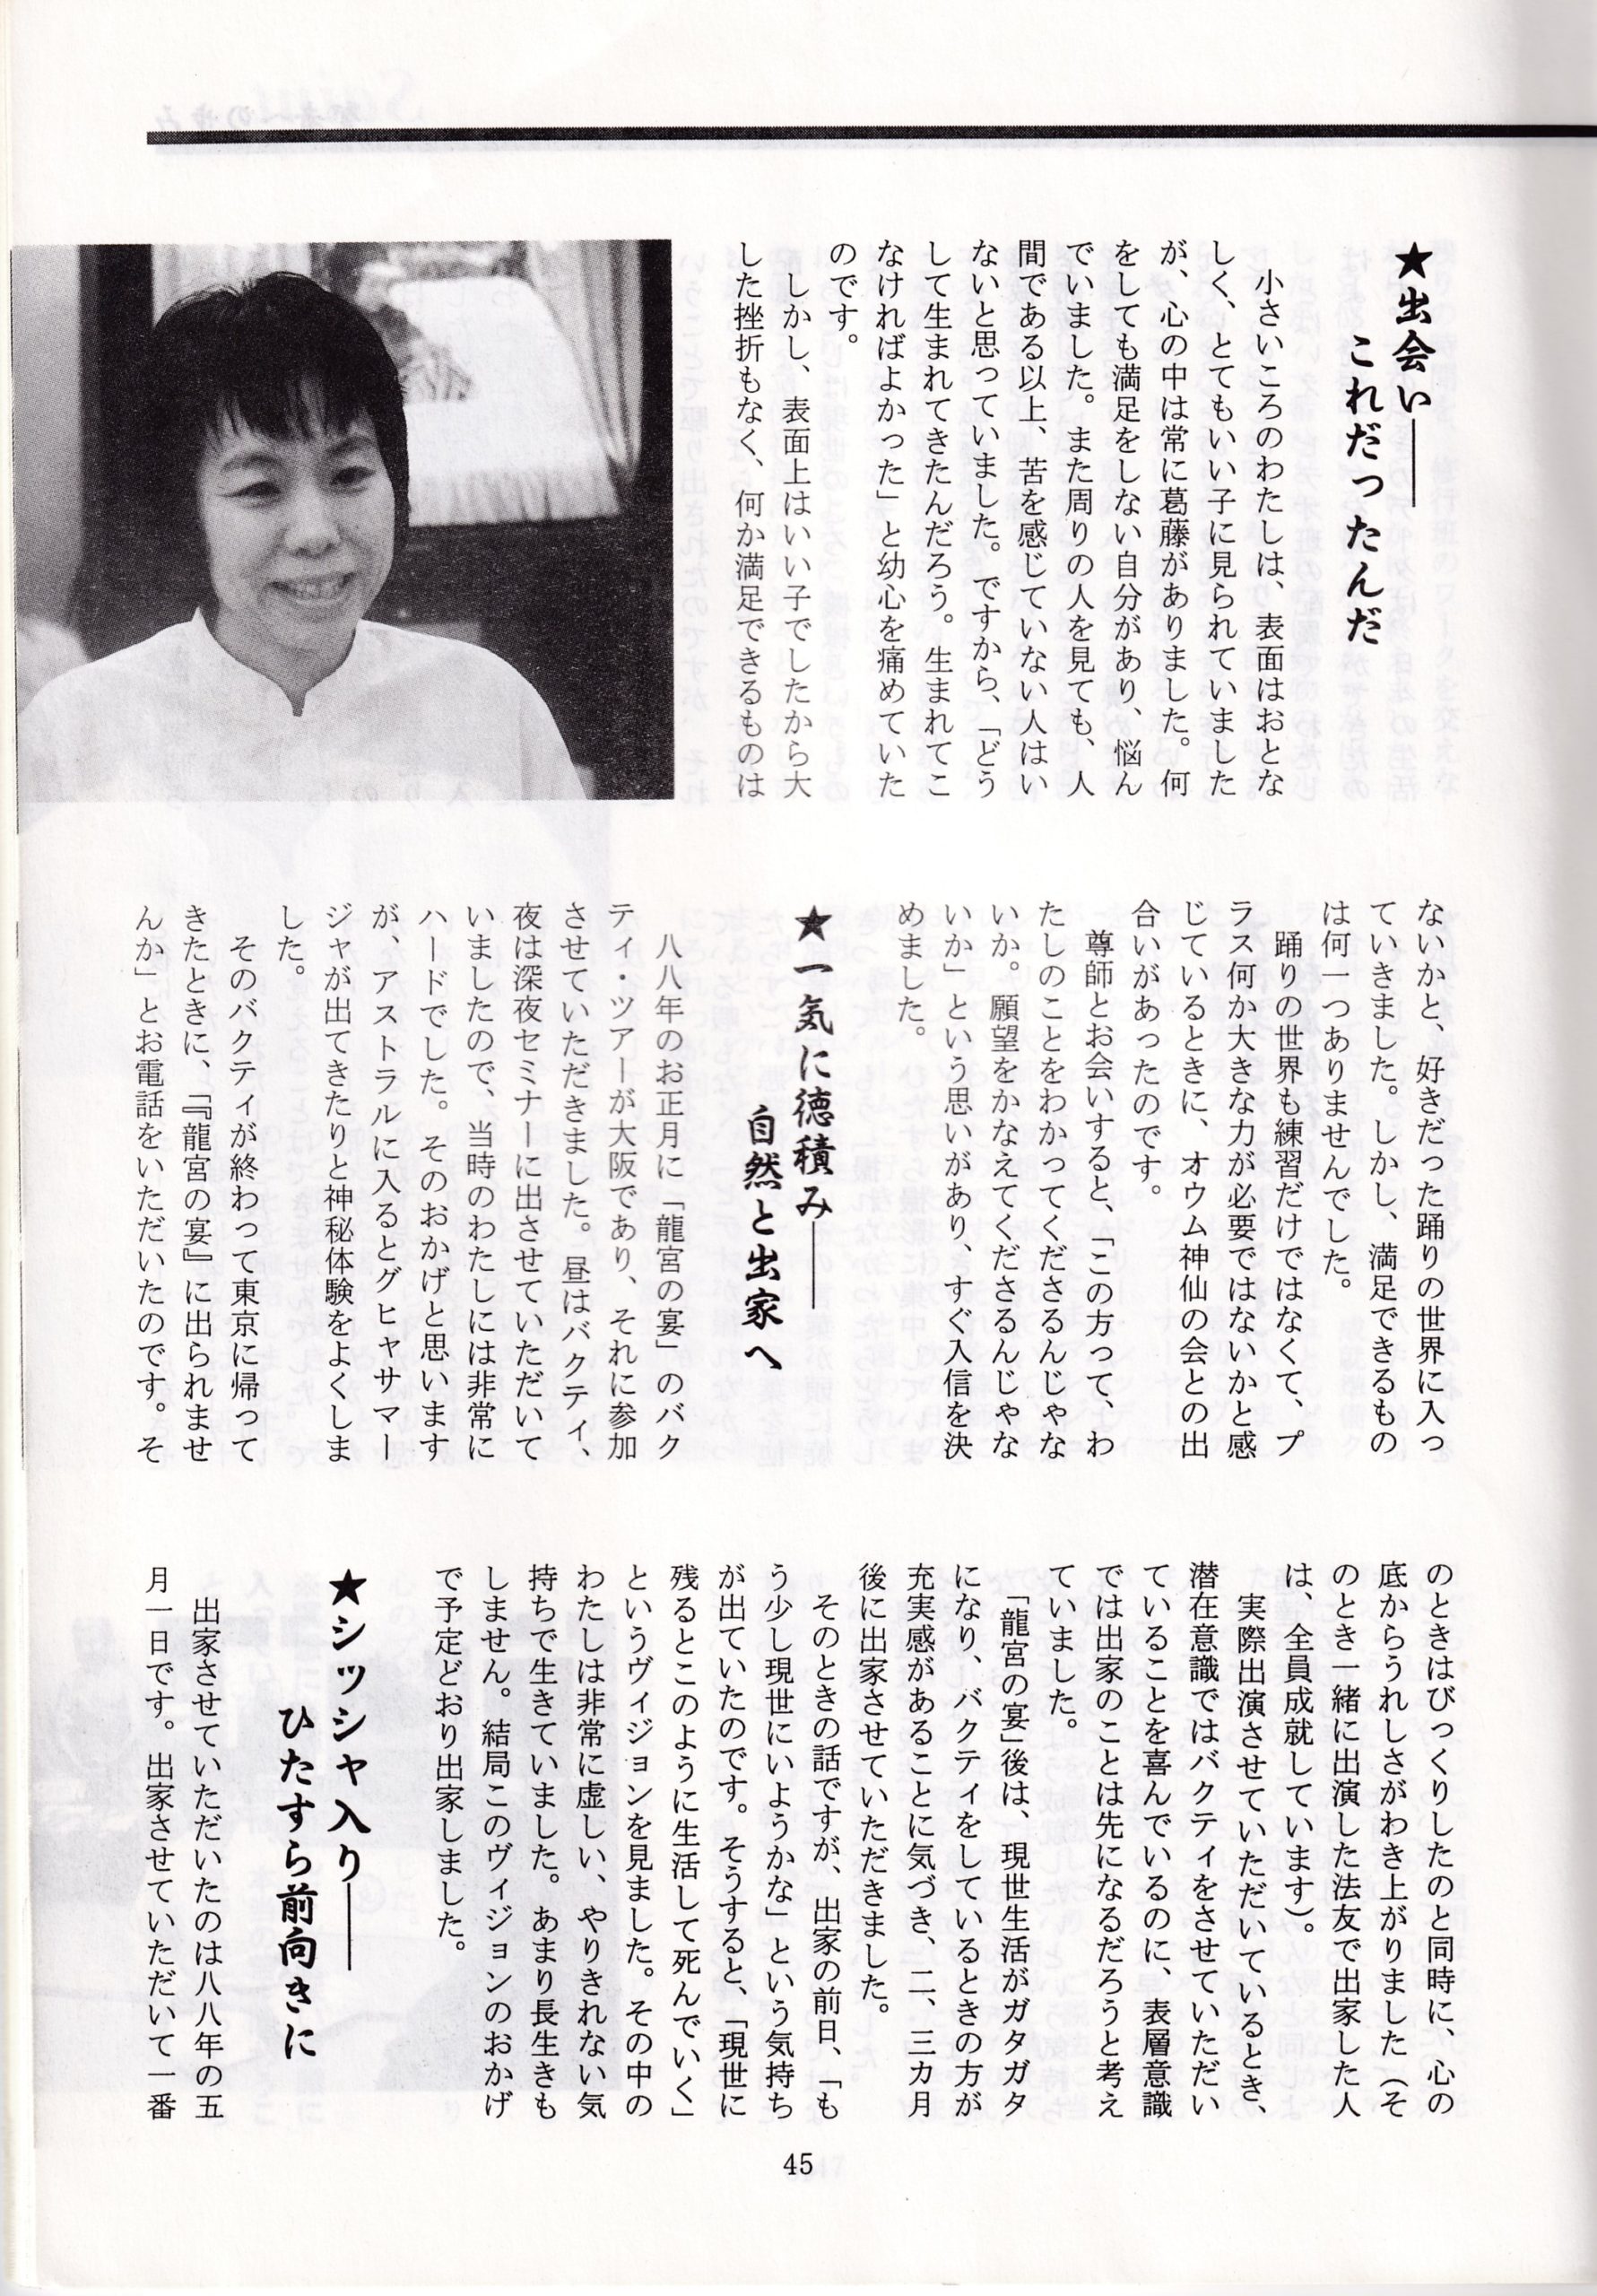 ★出会い――
これだったんだ
小さいころのわたしは、表面はおとな
しく、とてもいい子に見られていました
が、心の中は常に葛藤がありました。何
をしても満足をしない自分があり、悩ん
でいました。また周りの人を見ても、人
間である以上、苦を感じていない人はい
ないと思っていました。ですから、「どう
して生まれてきたんだろう。生まれてこ
なければよかった」と幼心を痛めていた
のです。
しかし、表面上はいい子でしたから大
した挫折もなく、何か満足できるものは
ないかと、好きだった踊りの世界に入っ
ていきました。しかし、満足できるもの
は何一つありませんでした。
踊りの世界も練習だけではなくて、プ
ラス何か大きな力が必要ではないかと感
じているときに、オウム神仙の会との出
合いがあったのです。
尊師とお会いすると、「この方って、わ
たしのことをわかってくださるんじゃな
いか。願望をかなえてくださるんじゃな
いか」という思いがあり、すぐ入信を決
めました。
★一気に徳積み――
自然と出家へ
八八年のお正月に「龍宮の宴」のバク
ティ・ツアーが大阪であり、それに参加
させていただきました。昼はバクティ、
夜は深夜セミナーに出させていただいて
いましたので、当時のわたしには非常に
ハードでした。そのおかげと思います
が、アストラルに入るとグヒャサマー
ジャが出てきたりと神秘体験をよくしま
した。
そのバクティが終わって東京に帰って
きたときに、「『龍宮の宴』に出られませ
んか」とお電話をいただいたのです。そ
のときはびっくりしたのと同時に、心の
底からうれしさがわき上がりました（そ
のとき一緒に出演した法友で出家した人
は、全員成就しています）。
実際出演させていただいているとき、
潜在意識ではバクティをさせていただい
ていることを喜んでいるのに、表層意識
では出家のことは先になるだろうと考え
ていました。
「龍宮の宴」後は、現世生活がガタガタ
になり、バクティをしているときの方が
充実感があることに気づき、二、三カ月
後に出家させていただきました。
そのときの話ですが、出家の前日、「も
う少し現世にいようかな」という気持ち
が出ていたのです。そうすると、「現世に
残るとこのように生活して死んでいく」
というヴィジョンを見ました。その中の
わたしは非常に虚しい、やりきれない気
持ちで生きていました。あまり長生きも
しません。結局このヴィジョンのおかげ
で予定どおり出家しました。
★シッシャ入り――
ひたすら前向きに
出家させていただいたのは八八年の五
月一日です。出家させていただいて一番
45